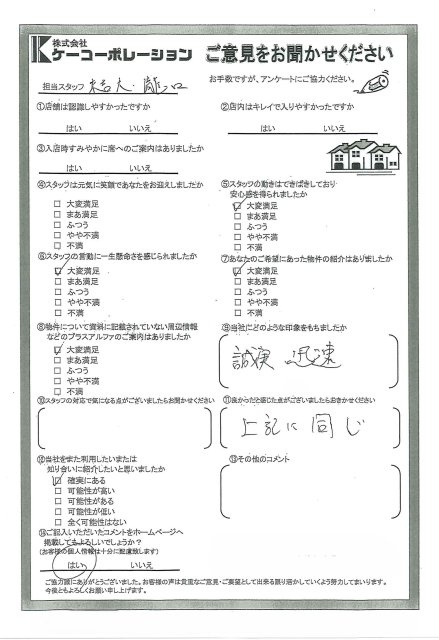 株式会社
ケーコーポレーション
ご意見をお聞かせください
担当スタッフ
お手数ですが、アンケートにご協力ください。
①店舗は認識しやすかったですか
はい いいえ
②店内はキレイで入りやすかったですか
はい いいえ
③入店時すみやかに席へのご案内はありましたか
はい いいえ
④スタッフは元気に笑顔であなたをお迎えしましたか
□ 大変満足
□ まあ満足
□ ふつう
□ やや不満
□ 不満
⑤スタッフの動きはてきぱきしており
安心感を得られましたか
☑ 大変満足
□ まあ満足
□ ふつう
□ やや不満
□ 不満
⑥スタッフの言動に一生懸命さを感じられましたか
☑ 大変満足
□ まあ満足
□ ふつう
□ やや不満
□ 不満
⑦あなたのご希望にあった物件の紹介はありましたか
☑ 大変満足
□ まあ満足
□ ふつう
□ やや不満
□ 不満
⑧物件について資料に記載されていない周辺情報
などのプラスアルファのご案内はありましたか
☑ 大変満足
□ まあ満足
□ ふつう
□ やや不満
□ 不満
⑨当社にどのような印象をもちましたか
誠実 迅速
⑩スタッフの対応で気になる点がございましたらお聞かせください
⑪良かったと感じた点がございましたらおきかせください
上記に同じ
⑫当社をまた利用したいまたは
知り合いに紹介したいと思いましたか
☑ 確実にある
□ 可能性が高い
□ 可能性がある
□ 可能性が低い
□ 全く可能性はない
⑬その他のコメント
⑭ご記入いただいたコメントをホームページへ
掲載してもよろしいでしょうか？
(お客様の個人情報は十分に配慮致します)
はい いいえ
ご協力誠にありがとうございました。お客様の声は貴重なご意見・ご要望として出来る限り活かしていくよう努力してまいります。
今後ともよろしくお願い申し上げます。